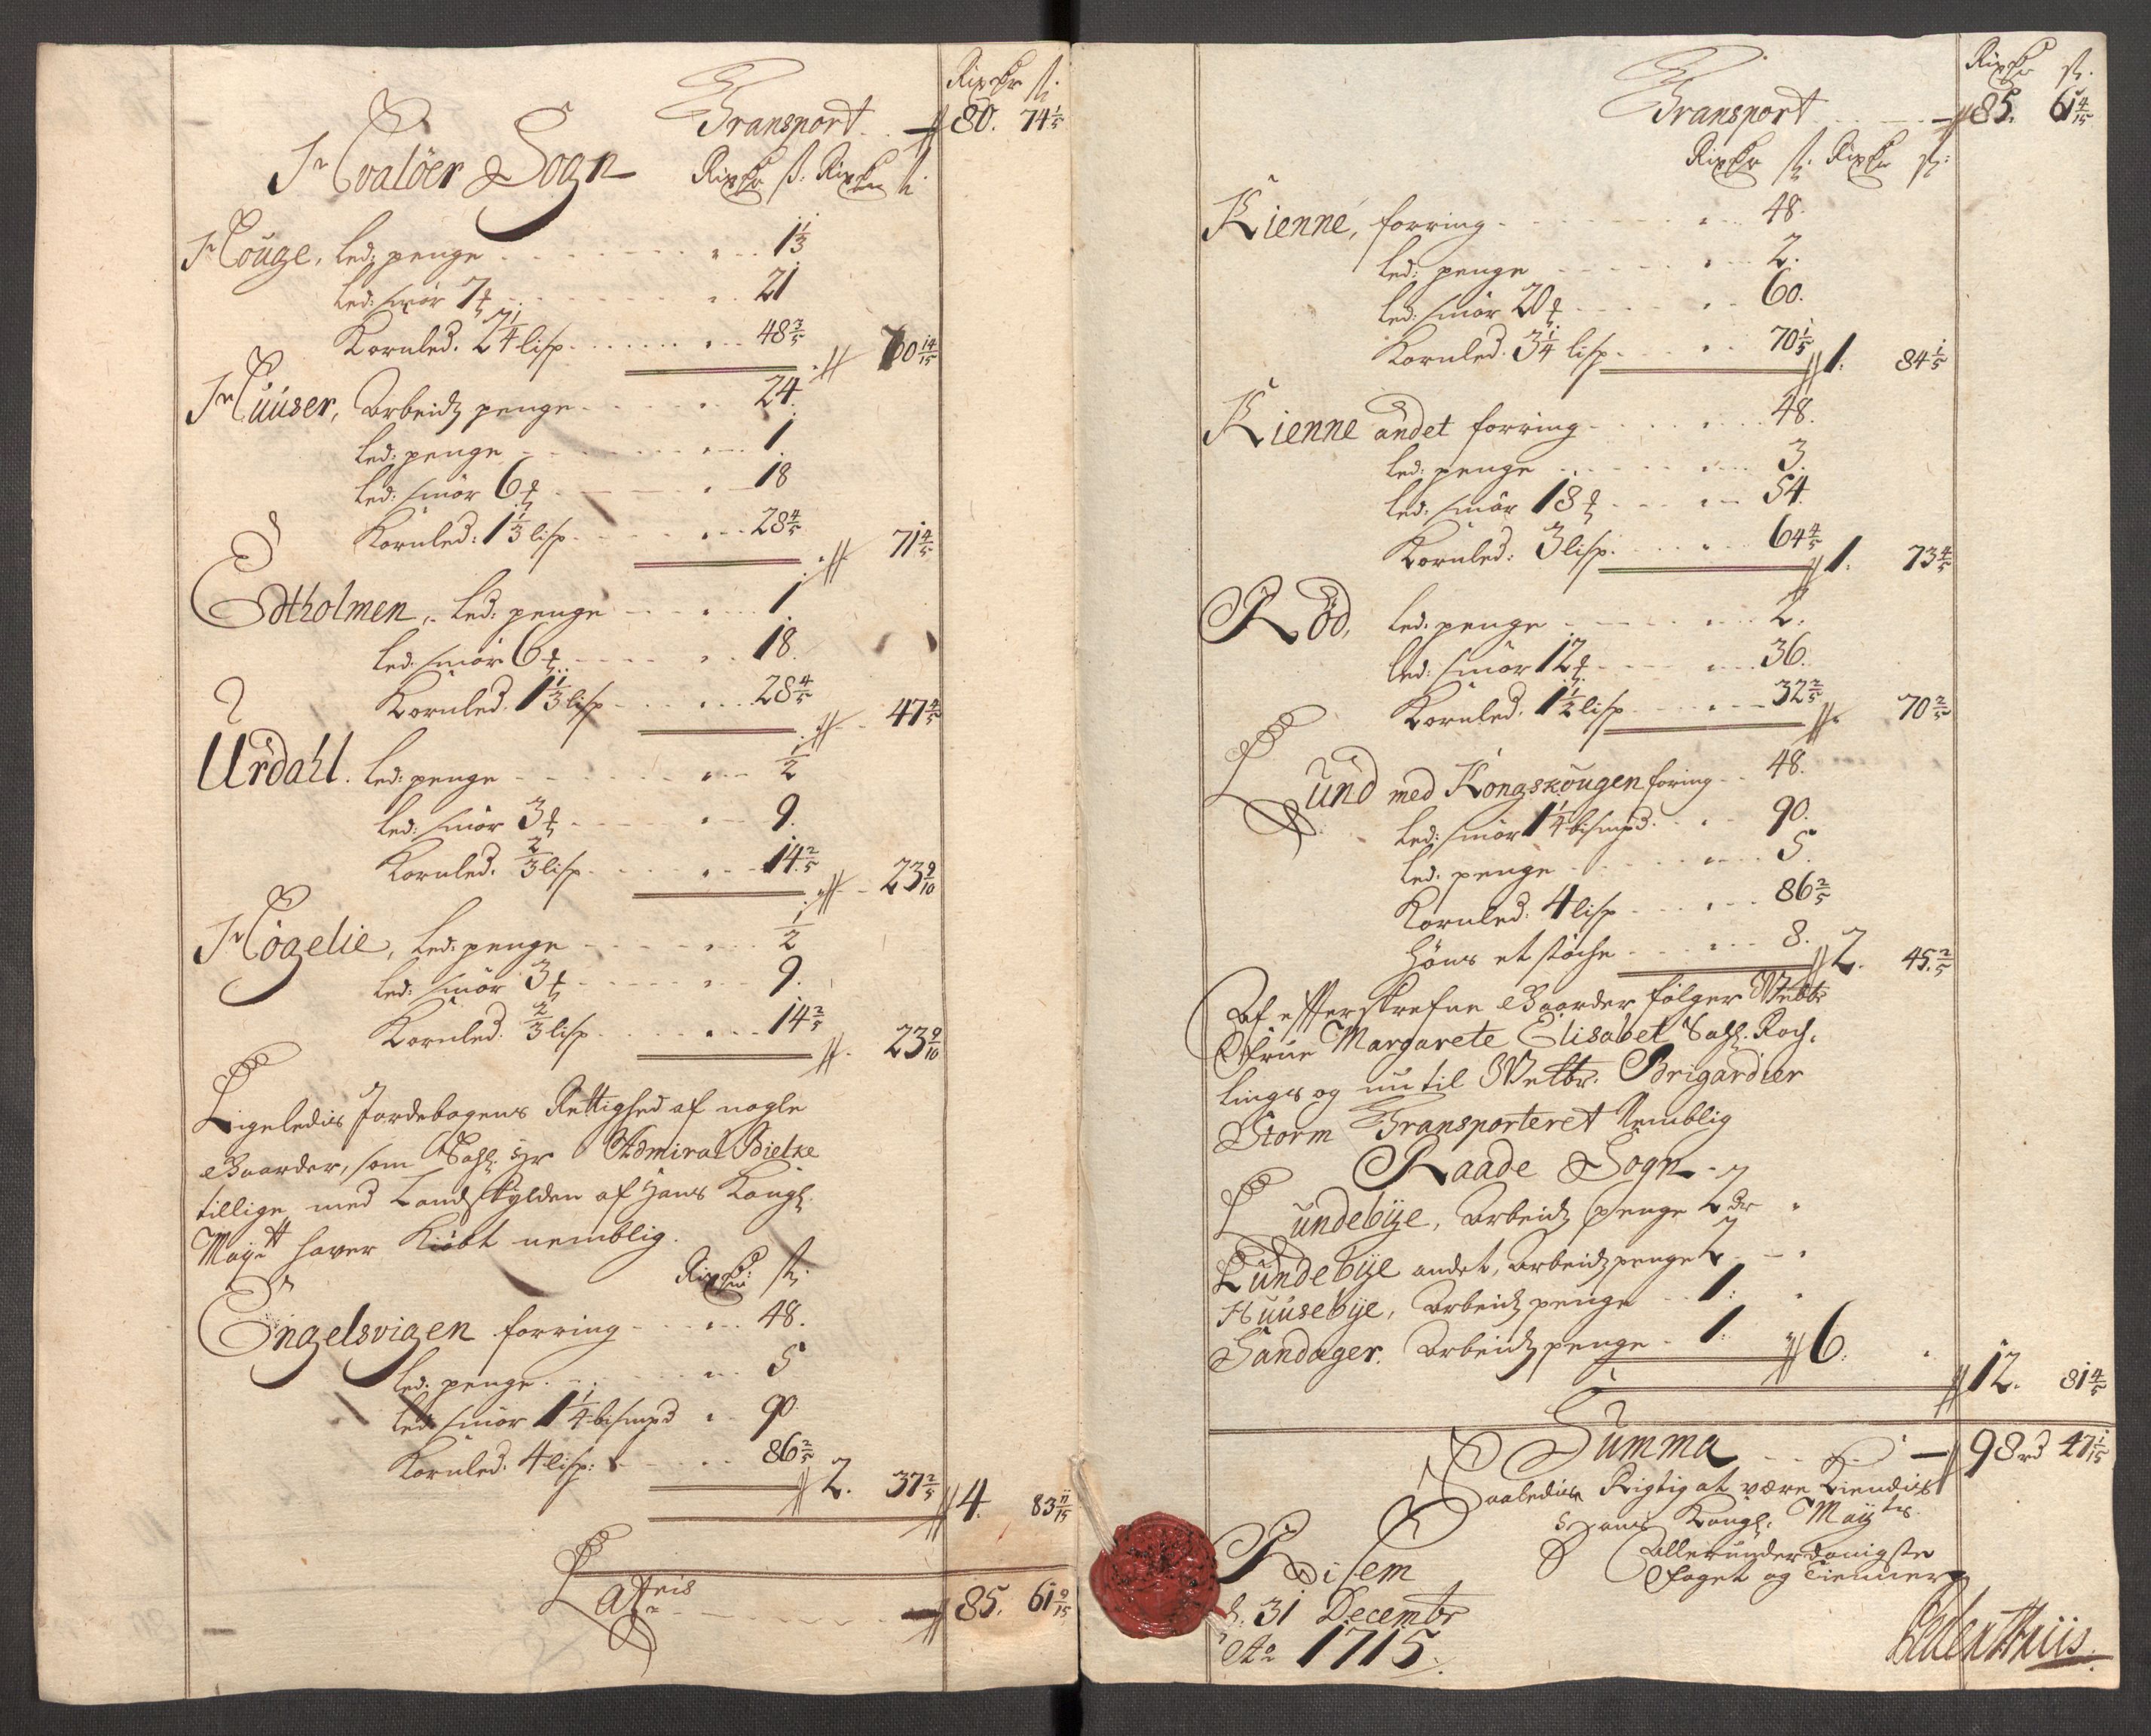 Rixdr ß:
Transport - 80. 74 1/5
Hvalöer Sogn Rixdr ß: Rixdr ß:
Houge, Led: penge 1 1/3
Led: smör 7 ℔ 21
Kornled. 2 1/4 lisp. 48 3/5
70 14/15
Huuser, Arbeidz penge 24.
Led: penge 1.
Led: smör 6 ℔ 18
Kornled: 1 1/3 lisp. 28 4/5
71 4/5
Edtholmen, Led: penge 1
Led: smör 6 ℔ 18.
Kornled. 1 1/3 lisp 28 4/5
47 4/5
Urdahl. Led: penge 1/2
Led: smör 3 ℔ 9.
Kornled. 2/3 lisp. 14 2/5
23 9/10
Högelie, Led: penge 1/2
Led: smör 3 ℔ 9.
Kornled. 2/3 lisp. 14 2/5
23 9/10
Ligeledis Jordebogens Rettighed af nogle
Gaarder, som Sahl: Hr Admiral Bielke
tillige med Landskylden af Hans Kongl:
Maytt haver Kiöbt nemblig.
Rixdr: ß:
Engelsvigen forring 48.
Led: penge 5
Led: smör 1 1/4 bismpd 90.
Kornled: 4 lisp: 86 2/5
2. 37 2/5 4. 83 11/15
Lateris 85. 61 9/15
Rixdr ß.
Transport 85. 61 4/15
Rixdr ß: Rixdr ß:
Kienne, forring 48.
Led: penge 2.
Led: smör 20 ℔ 60.
Kornled. 3 1/4 lisp. 70 1/5
1. 84 1/5
Kienne andet forring 48.
Led: penge 3.
Led: smör 18 ℔ 54.
Kornled: 3 lisp. 64 4/5
1. 73 4/5
Röd, Led: penge 2.
Led: smör 12 ℔ 36.
Kornled. 1 1/2 lisp 32 2/5
70 2/5
Lund med Kongskougen foring 48.
Led: smör 1 1/4 bismpd. 90.
Led: penge 5.
Kornled: 4 lisp 86 2/5
Höns et støche 8.
2. 45 2/5
Af efterskrefne Gaarder fölger Welbr
Frue Margarete Elisabet Sahl: Röch-
lings og nu til Welbr: Brigardier
Storm Transporteret Nemblig
Raade Sogn
Lundebye, Arbeidz penge 2 dr
Lundebye andet, Arbeidz penge 2
Huusebye, Arbeidz penge 1:
Sandager. Arbeidz penge 1:
6:
12. 81 4/5
Summa 98 rd 47 1/15
Saaledis Rigtig at være Kiendis
Hans Kongl: Maytz
Allerunderdanigste
Foget og Tienner
Risem
d. 31 Decembr
Ao 1715.
Peder Thiis.